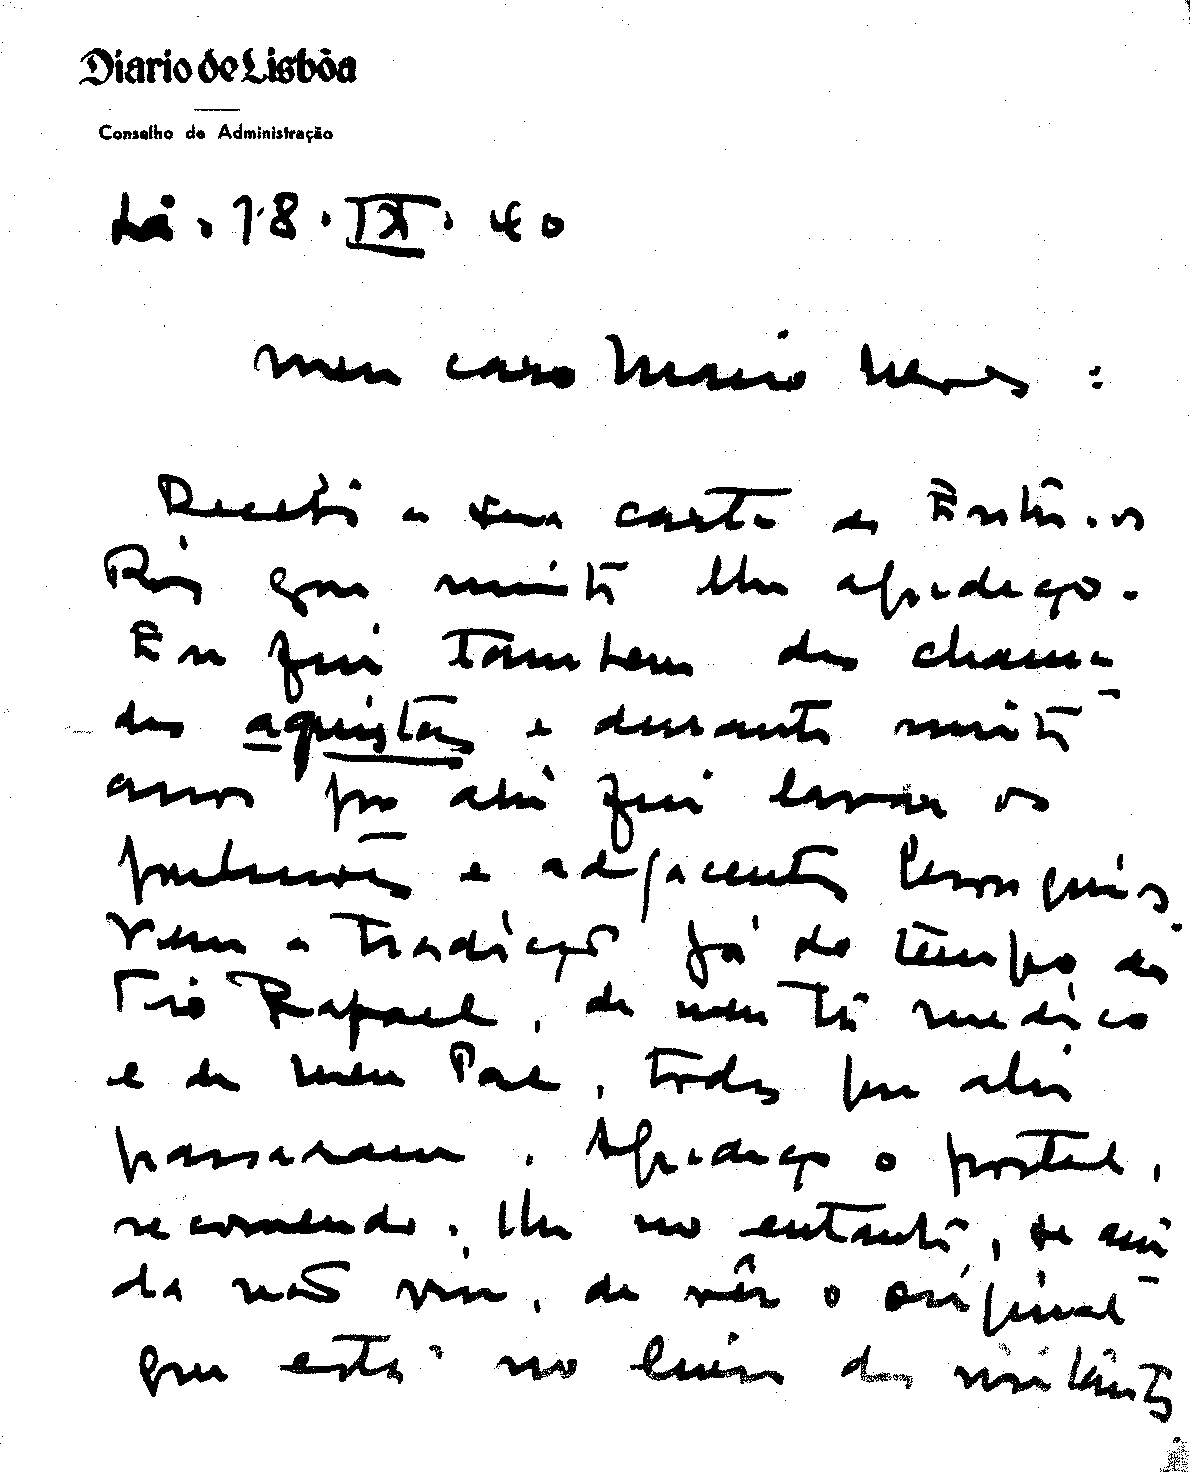 Diario de Lisbôa
Conselho de Administração
Lx. 18. IX. 40
Meu caro Mario Neves:
Recebi a sua carta de Entre-os
Rios que muito lhe agradeço.
Eu fui tambem dos chama-
dos aquistas e durante muitos
anos por ali fui lavar os
pulmões e adjacentes
Vem a tradição já do tempo do
Tio Rafael, do meu tio medico
e do meu Pae, todos por ali
passaram. Agradeço o postal,
recomendo-lhe no entanto, se ain-
da não viu, de vêr o original
que está no livro dos visitantes